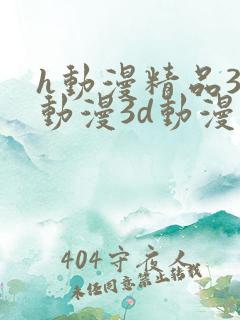 h動漫精品3
動漫3d動漫
404守夜人
未经同意禁止转载